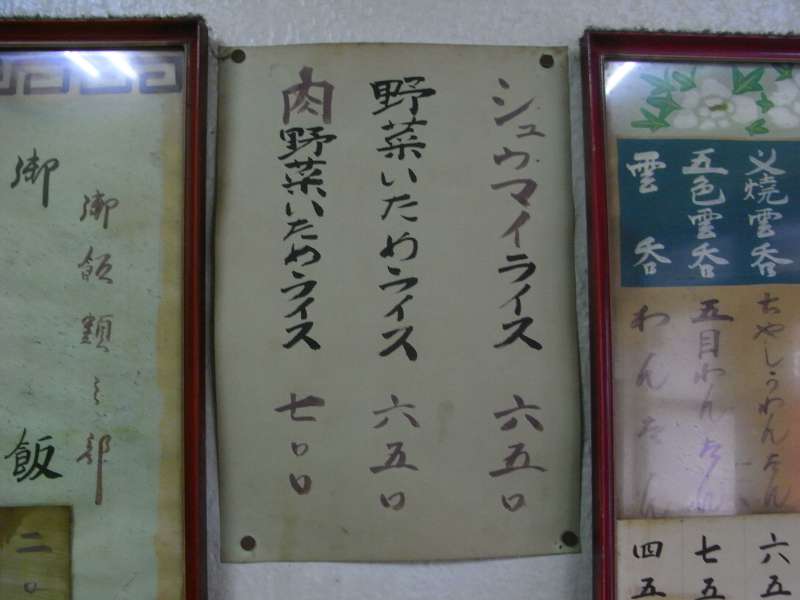 叉焼雲呑 ちやしうわんたん 六五
五色雲呑 五目わんたん 七五
雲呑 わんたん 四五
シュウマイライス 六五〇
野菜いためライス 六五〇
肉野菜いためライス 七〇〇
御飯類之部
御飯 二〇